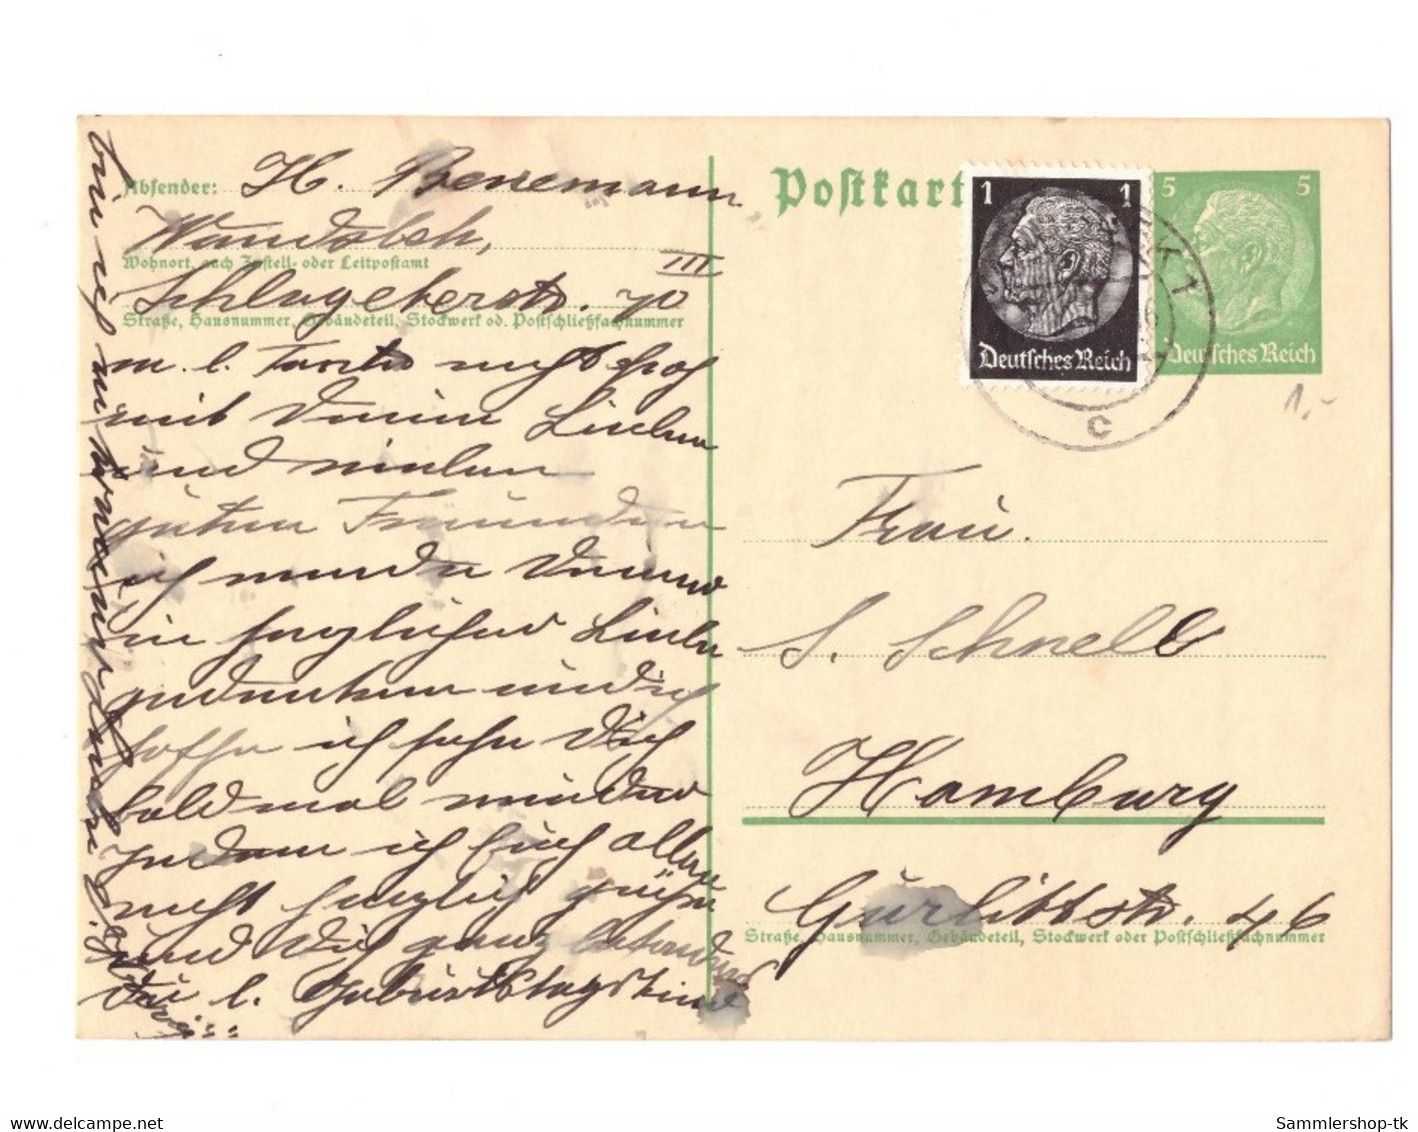 Absender: H. Benemann
Wandsbek,
Wohnort, auch Zustell- oder Leitpostamt
III
Schlageterstr. 70
Straße, Hausnummer, Gebäudeteil, Stockwerk od. Postschließfachnummer
m. l. nicht
mit Deinen Lieben
und vielen
guten Freunden
ich werde Deiner
in herzlicher Liebe
gedenken und ich
hoffe ich sehe Dich
bald mal wieder
indem ich Euch allen
recht herzlich grüße
und Dich ganz besonders
Du l. Geburtstagskind
Postkart
1 1
Deutsches Reich
5 5
Deutsches Reich
c
1,-
Frau
S. Schnell
Hamburg
Gurlittstr. 46
Straße, Hausnummer, Gebäudeteil, Stockwerk oder Postschließfachnummer
Sammlershop-tk
delcampe.net